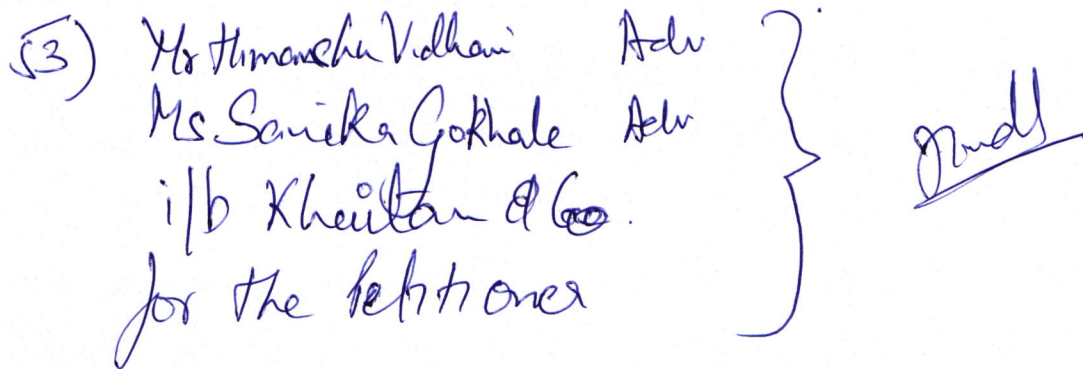 53) Mr Himanshu Vidhani Adv
Ms Sanika Gokhale Adv
i/b Khaitan & Co.
for the Petitioner